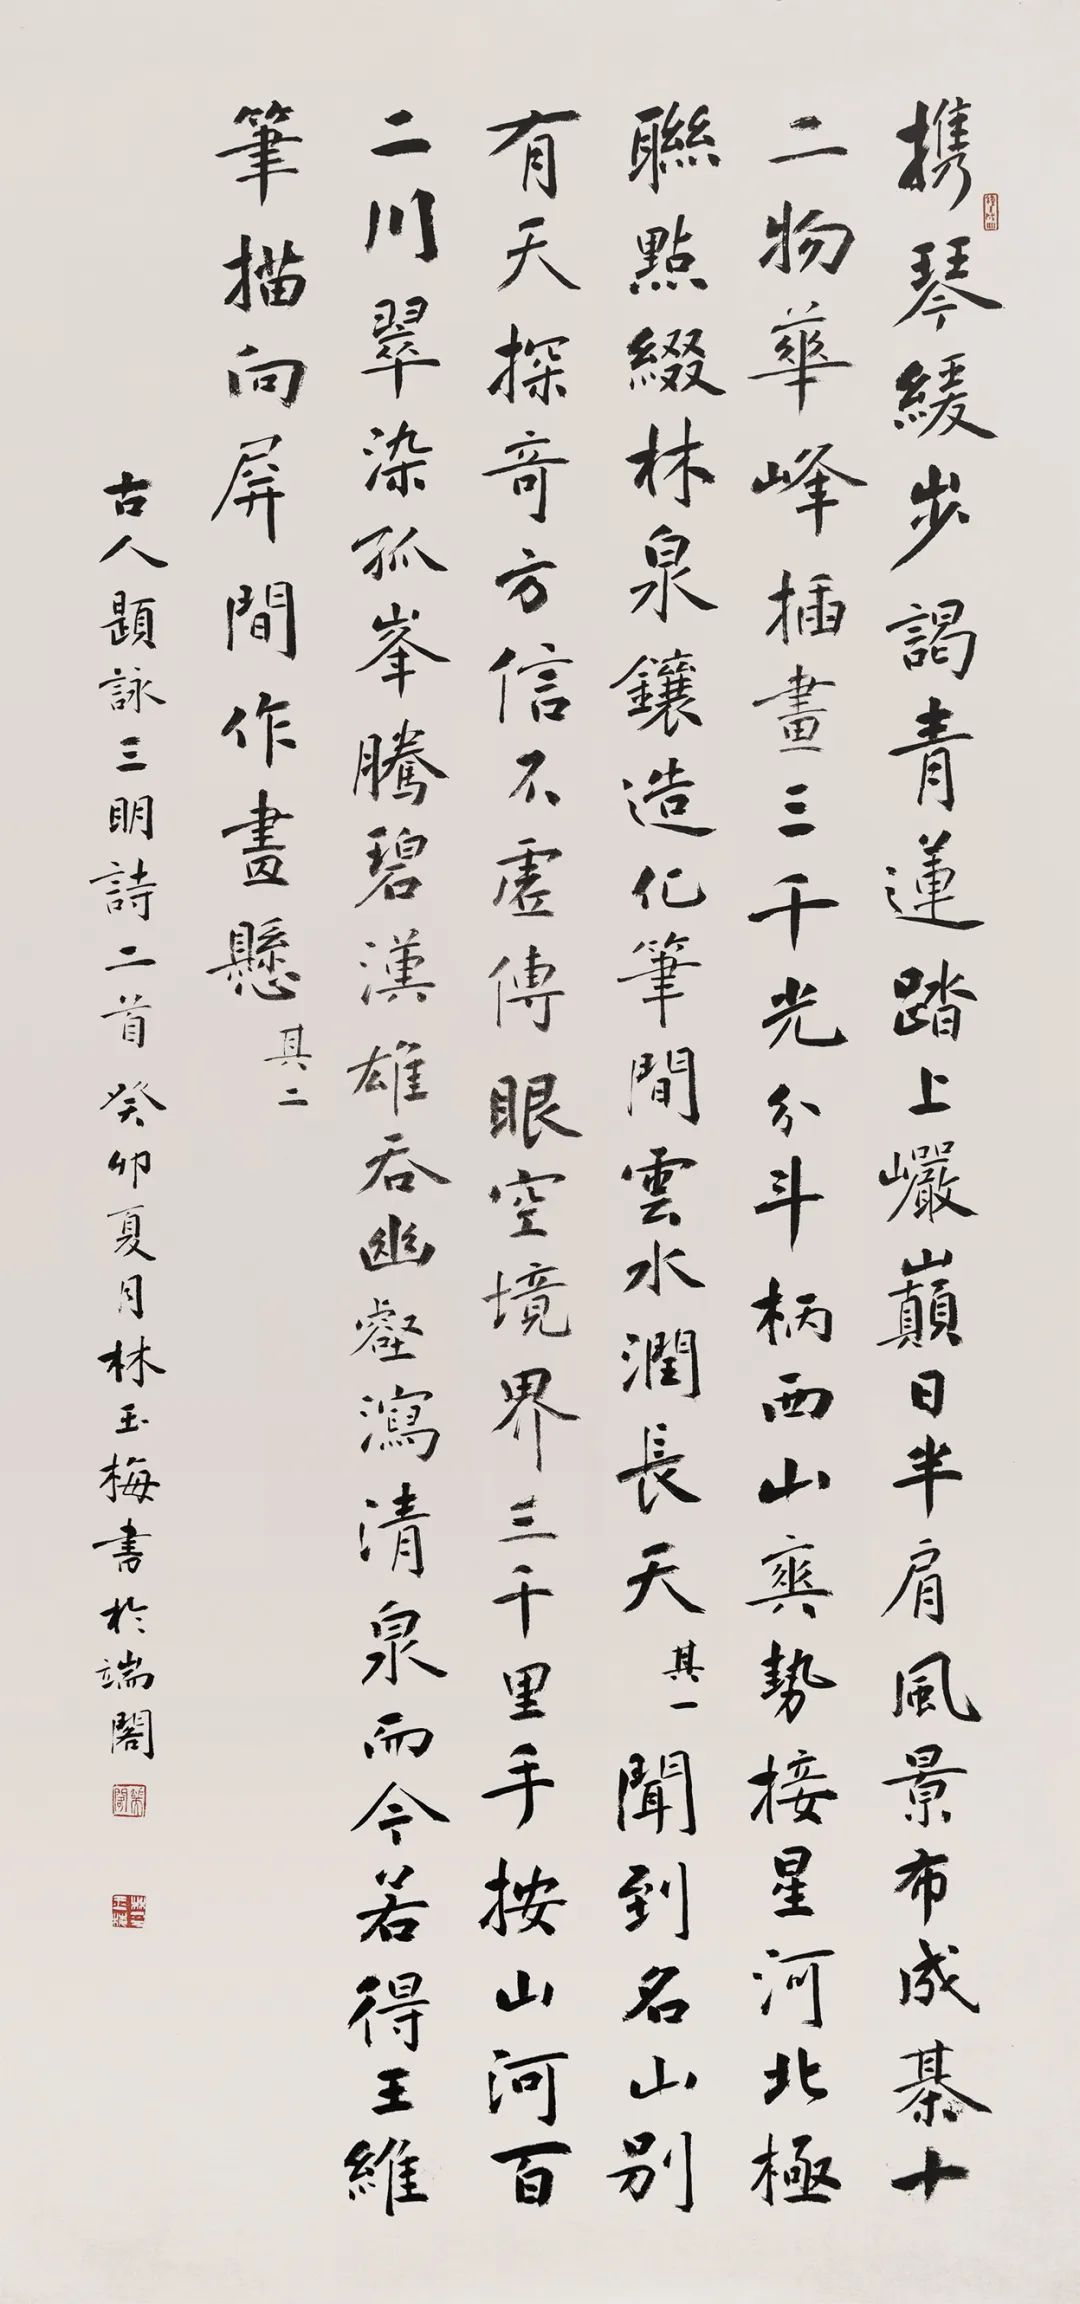 携琴緩步謁青蓮踏上巖巔日半肩風景布成棊十
二物華峰插畫三千光分斗柄西山爽勢接星河北極
聯點綴林泉鑲造化筆間雲水潤長天其一聞到名山別
有天探奇方信不虛傳眼空境界三千里手按山河百
二川翠染孤峯騰碧漢雄吞幽壑瀉清泉而今若得王維
筆描向屏間作畫懸其二
古人題詠三明詩二首癸卯夏月林玉梅書於端閣